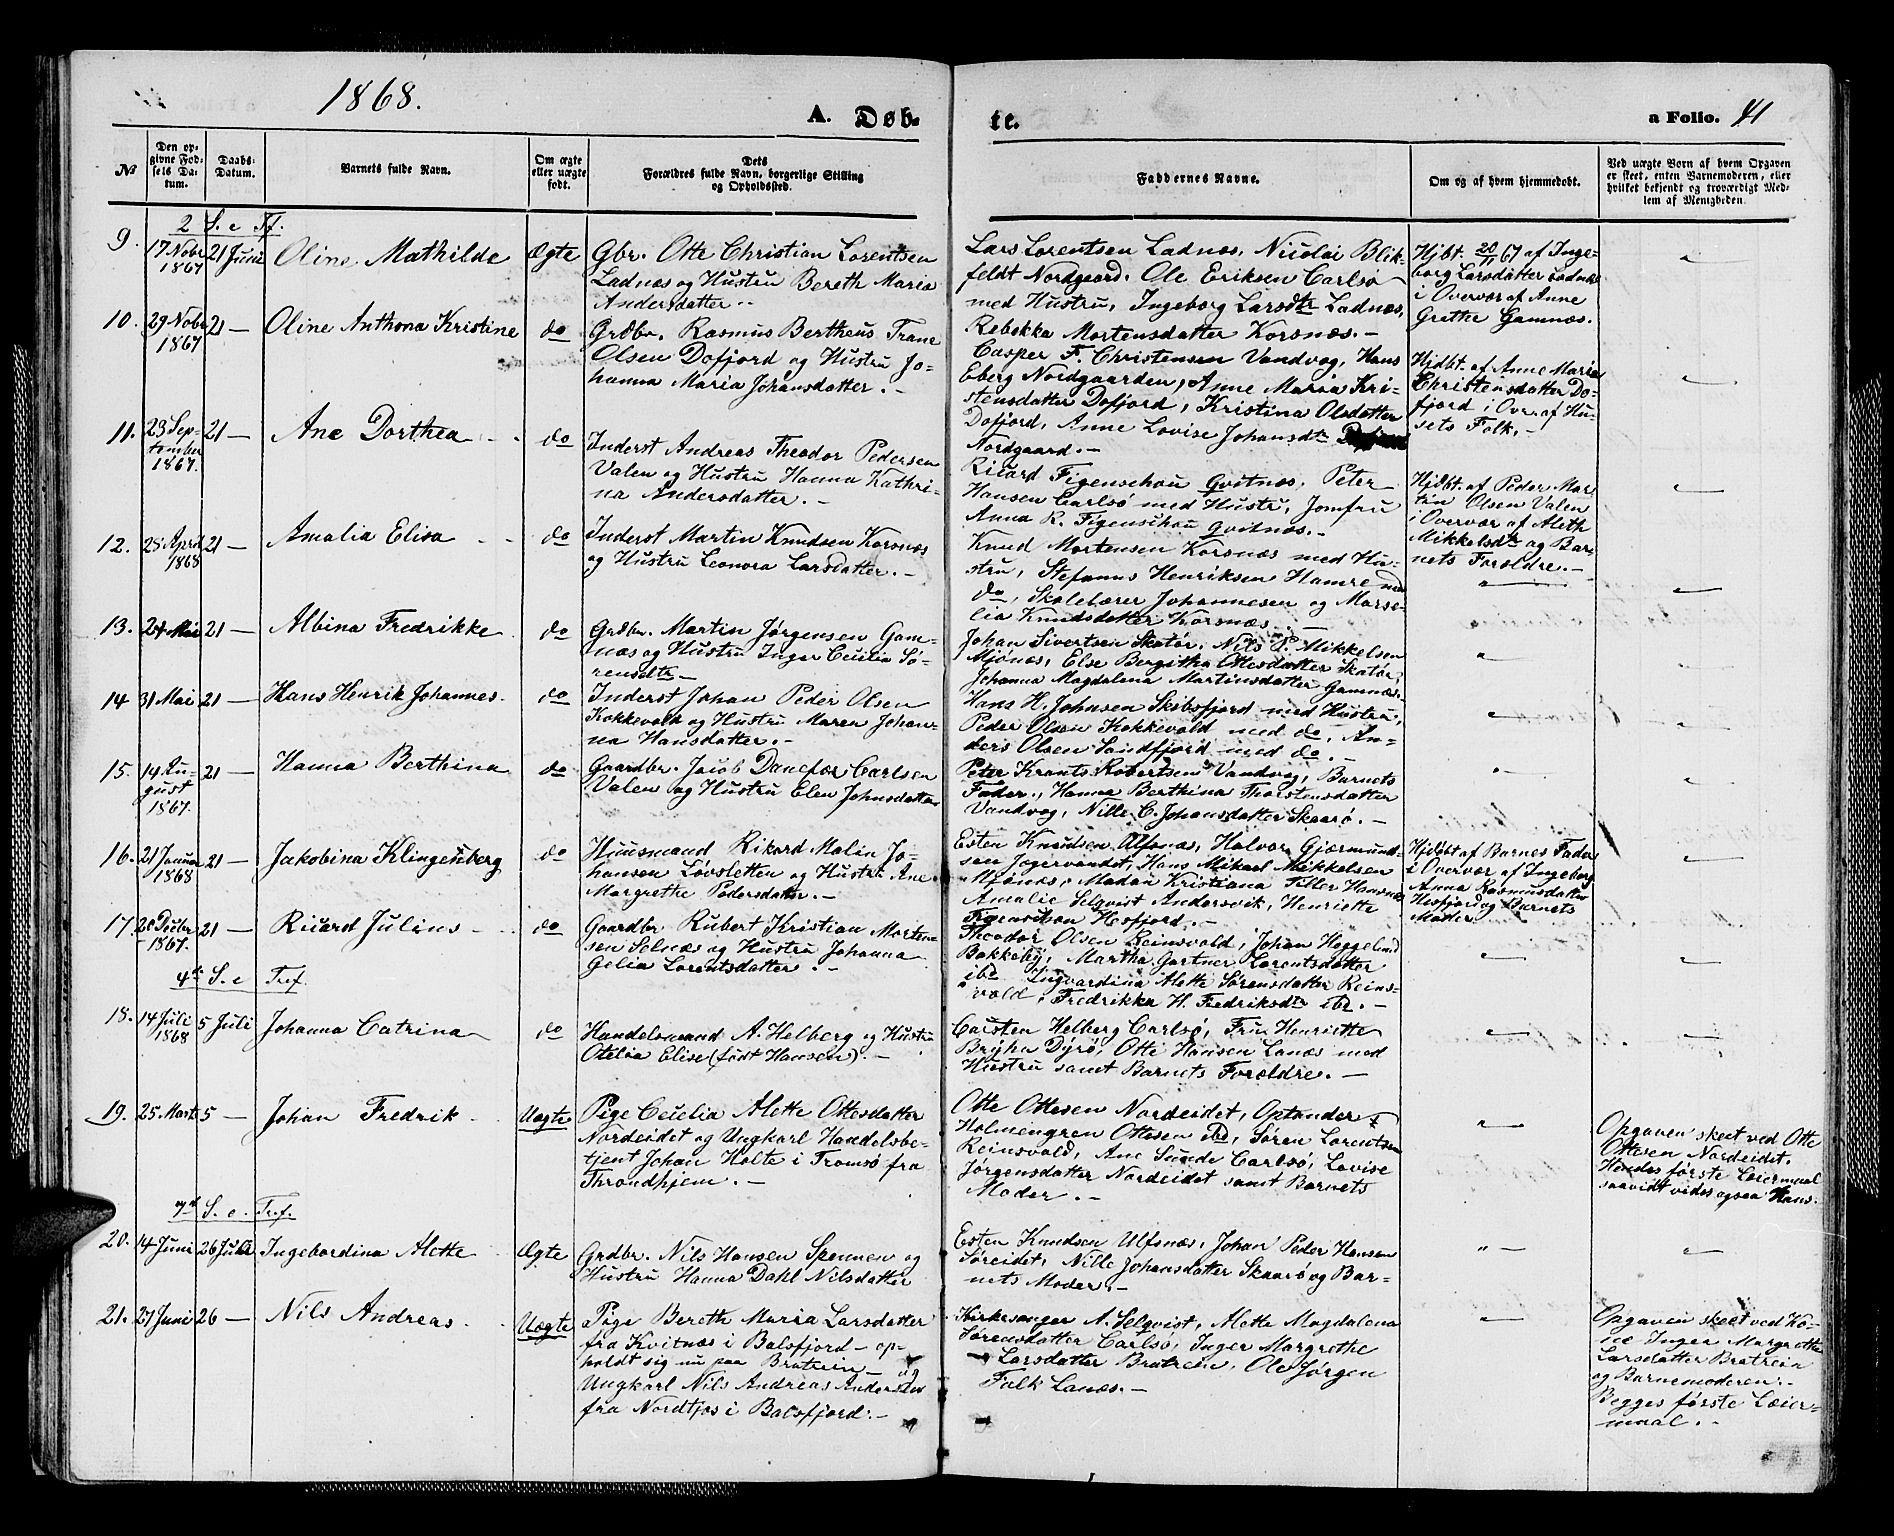 1868.
A. Døb-
te.
a Folio. 41
№
Den op-
givne Fød-
sels Da-
tum.
Daabs-
Datum.
Barnets fulde Navn.
Om ægte
eller uægte
født.
Dets
Forældres fulde Navn, borgerlige Stilling
og Opholdssted.
Faddernes Navne.
Om og af hvem hjemmedøbt.
Ved uægte Børn af hvem Opgaven
er skeet, enten Barnemoderen, eller
hvilket bekjendt og troværdigt Med-
lem af Menigheden.
2 S. e Tf.
9. 17 Nobr 1867 21 Juni Oline Mathilde Ægte
Gbr. Otte Christian Lorentsen
Ladnæs og Hustru Bereth Maria
Andersdatter.-
Lars Lorentsen Ladnæs, Niculai Blik-
feldt Nordgaard. Ole Eriksen Carlsø
med Hustru, Ingeborg Larsdtr Ladnæs,
Rebekka Mortensdatter Korsnæs.-
Hjbt. 20/11 67 af Inge-
borg Larsdatter Ladnæs
i Overvær af Anne
Grethe Gamnæs.
10. 29 Nobr 1867 21 — Oline Anthona Kristine do
Grdbr. Rasmus Bertheus Trane
Olsen Dofjord og Hustru Jo-
hanna Maria Johansdatter.-
Casper F. Christensen Vandvog, Hans
Eberg Nordgaarden, Anne Maria Kri-
stensdatter Dofjord, Kristina Olsdatter
Dofjord, Anne Lovise Johansdtr
Nordgaard.-
Hjdbt. af Anne Maria
Christensdatter Do-
fjord i Over. af Hu-
sets Folk.-
11. 23 Sep-
tember
1867. 21 — Ane Dorthea do
Inderst Andreas Theodor Pedersen
Valen og Hustru Hanna Kathri-
na Andersdatter.-
Ricard Figenschou Qvitnæs, Peter
Hansen Carlsø med Hustru, Jomfru
Anna R. Figenschou Qvitnæs.-
Hjdbt. af Peder Mar-
tin Olsen Valen
i Overvær af Aleth
Mikkelsdtr og Bar-
nets Forældre.-
12. 28 April 1868 21 — Amalia Elisa do
Inderst Martin Knudsen Korsnæs
og Hustru Leonora Larsdatter.-
Knud Mortensen Korsnæs med Hu-
stru, Stefanus Henriksen Hamre med
do, Skolelærer Johannesen og Marse-
lia Knudsdatter Korsnæs.
13. 24 Mai 21 — Albina Fredrikke do
Grdbr. Martin Jørgensen Gam-
næs og Hustru Inger Cecilia Sø-
rensdtr-
Johan Sivertsen Skatør, Nils P. Mikkelsen
Mjønæs, Else Bergitha Ottesdatter Skatør,
Johanna Magdalena Martinsdatter Gamnæs.
14 31 Mai 21 — Hans Henrik Johannes. do
Inderst Johan Peder Olsen
Kokkevold og Hustru Maren Johan-
na Hansdatter.-
Hans H. Johnsen Skibsfjord med Hustru,
Peder Olsen Kokkevold med do. An-
ders Olsen Sandfjord med do.-
15. 14 Au-
gust
1867. 21 — Hanna Berthina do
Gaardbr. Jacob Danefær Carlsen
Valen og Hustru Elen Johnsdatter
Peter Krants Robertsen Vandvog, Barnets
Fader., Hanna Berthina Thorstensdatter
Vandvog, Nille C. Johansdatter Skaarø.-
16. 21 Januar 1868 21 — Jakobina Klingenberg do
Huusmand Rikard Malin Jo-
hansen Løvsletten og Hustru Ane
Margrethe Pedersdatter.-
Esten Knudsen Ulfsnæs, Halvor Gjærmund-
sen Jægervandet, Hans Mikael Mikkelsen
Mjønæs, Madan Kristiana Filler Hansnæs
Amalie Selqvist Andersvik, Henriette
Figenschou Hesfjord.-
Hjdbt af Barnes Fader
i Overvær af Ingeborg
Anna Rasmusdatter
Hesfjord og Barnets
Moder
17. 20 Decbr 1867. 21 — Ricard Julius do
Gaardbr Rubert Kristian Morten-
sen Solnæs og Hustru Johanna
Gelia Lorentsdatter.-
Theodor Olsen Reinsvold, Johan Heggelund
Bakkeby, Martha Gartner Lorentsdatter
ibd Ingvardina Alette Sørensdatter Reins-
vold, Fredrikka H. Fredriksdtr ibd.-
4de S. e Tref.
18. 14 Juli 1868 5 Juli Johanna Catrina do
Handelsmand A. Helberg og Hustru
Otelia Elise (født Hansen).-
Carsten Helberg Carlsø, Fru Henriette
Bryhn Dyrø, Otte Hansen Lanæs med
Hustru samt Barnets Forældre.-
19. 25 Marts 5 — Johan Fredrik. Uægte
Pige Cecelia Alette Ottesdatter
Nordeidet og Ungkarl Handelsbe-
tjent Johan Holte i Tromsø fra
Throndhjem.-
Otte Ottesen Nordeidet, Optander
Holmengren Ottesen ibd, Søren Lorentsen
Reinsvold, Ane Sunde Carlsø, Lovise
Jørgensdatter Nordeidet samt Barnets
Moder.-
Opgaven skeet ved Otte
Ottesen Nordeidet.
Hendes første Leiermaal
saavidt vides ogsaa Hans.
7de S. e. Tref.
20. 14 Juni 26 Juli Ingebordina Alette Ægte
Grdbr. Nils Hansen Spennen og
Hustru Hanna Dahl Nilsdatter
Esten Knudsen Ulfsnæs, Johan Peder Hansen
Søreidet, Nille Johansdatter Skaarø og Bar-
nets Moder.-
21. 27 Juni 26 — Nils Andreas Uægte
Pige Bereth Maria Larsdatter
fra Kvitnæs i Balsfjord - op-
holdt sig nu paa Bratrein og
Ungkarl Nils Andreas Andersen
fra Nordtjos i Balsfjord.-
Kirkesanger A. Selqvist, Alette Magdalena
Sørensdatter Carlsø, Inger Margrethe
Larsdatter Bratrein, Ole Jørgen
Falk Lanæs.-
Opgaven skeet ved Ko-
ne Inger Margrethe
Larsdatter Bratrein
og Barnemoderen.-
Begges første Leier-
maal.-